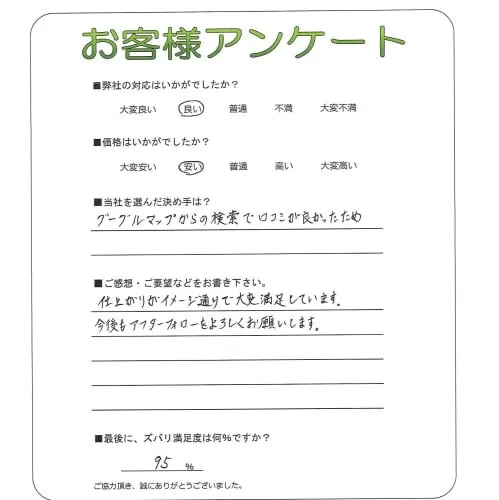 お客様アンケート
■弊社の対応はいかがでしたか？
大変良い 良い 普通 不満 大変不満
■価格はいかがでしたか？
大変安い 安い 普通 高い 大変高い
■当社を選んだ決め手は？
グーグルマップからの検索で口コミが良かったため
■ご感想・ご要望などをお書き下さい。
仕上がりがイメージ通りで大変満足しています。
今後もアフターフォローをよろしくお願いします。
■最後に、ズバリ満足度は何％ですか？
95 ％
ご協力頂き、誠にありがとうございました。